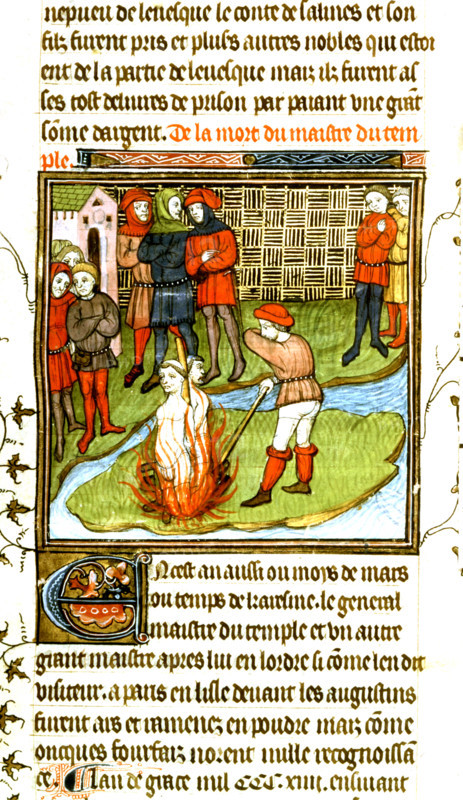 nepueu de leuesque le conte de salines et son
filz furent pris et pluss autres nobles qui estoi
ent de la partie de leuesque maiz ilz furent as
ses tost deliures de prison par paiant vne grãt
sõme dargent. De la mort du maistre du tem
ple.
En cest an aussi ou moys de mars
ou temps de karesme. le general
maistre du temple et vn autre
grant maistre apres lui en lordre si cõme len dit
visiteur. a paris en lisle deuant les augustins
furent ars et ramenez en poudre maiz cõme
oncques fourfaiz norent nulle recognoissã
ce. Lan de grace mil CCC. xiiii. ensiuant